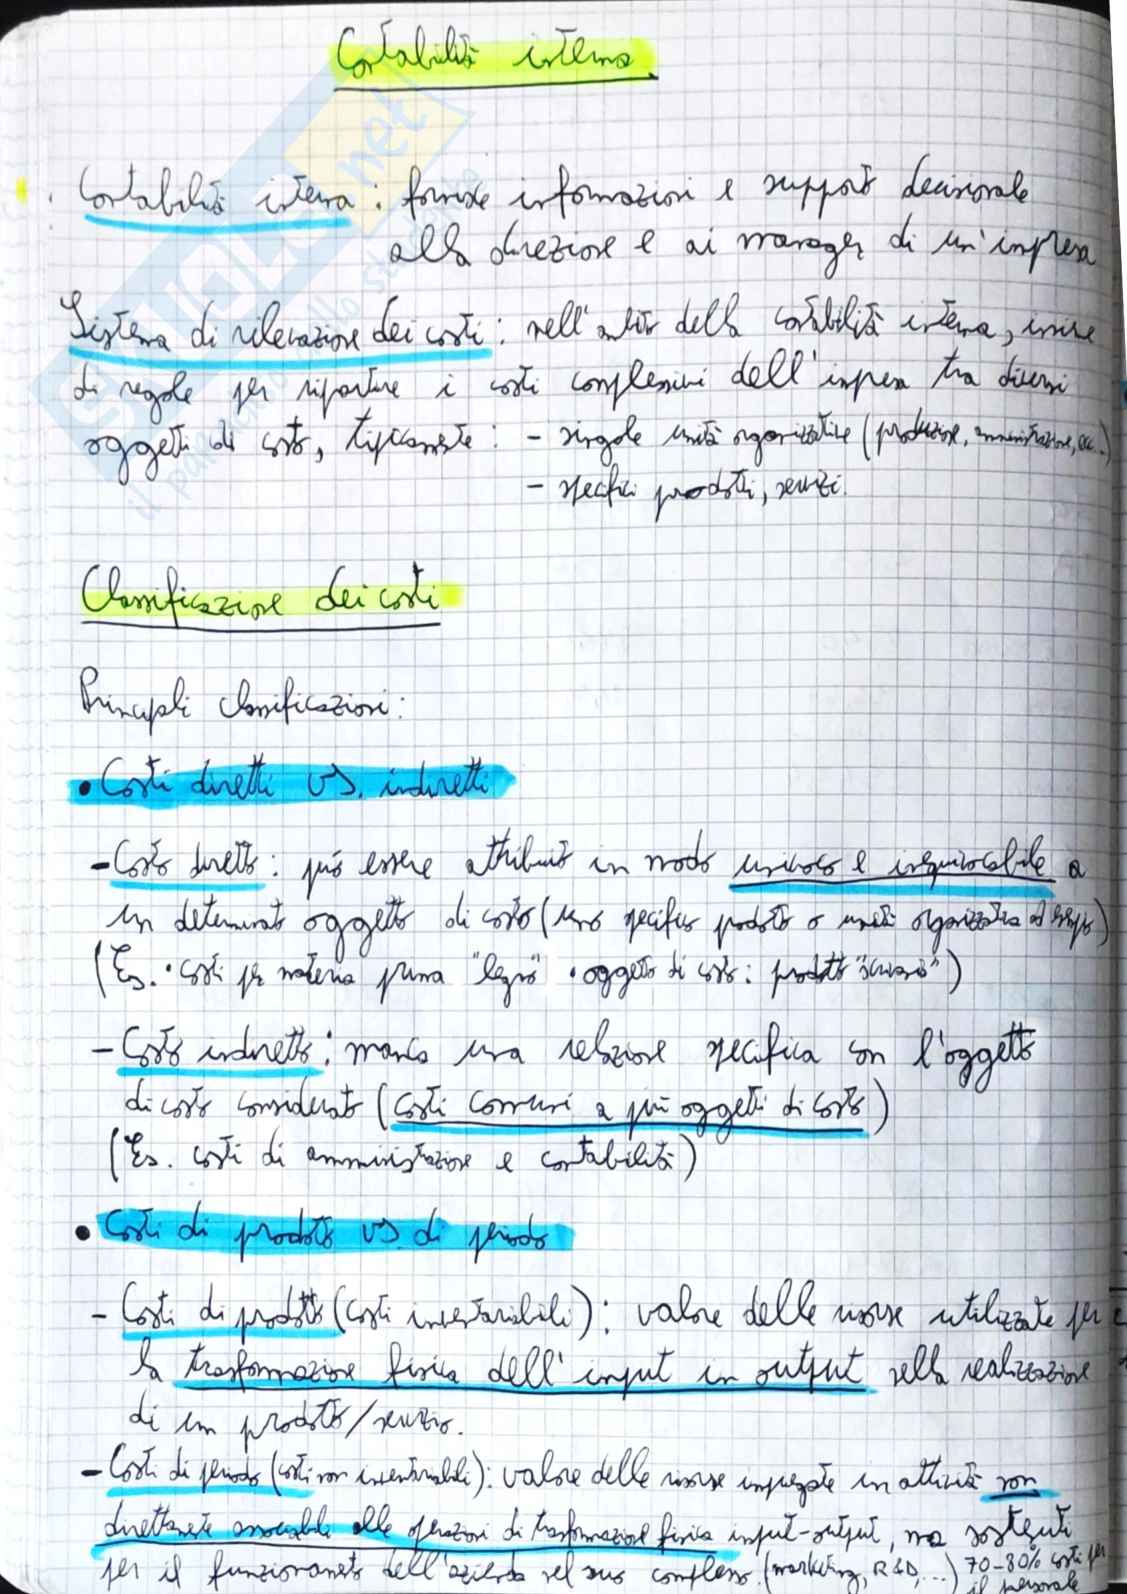 Contabilità interna
Contabilità interna: fornisce informazioni e supporto decisionale
alla direzione e ai manager di un'impresa
Sistema di rilevazione dei costi: nell'ambito della contabilità interna, insieme
di regole per ripartire i costi complessivi dell'impresa tra diversi
oggetti di costo, tipicamente: - singole unità organizzative (produzione, amministrazione, ecc...)
- specifici prodotti, servizi.
Classificazione dei costi
Principali classificazioni:
• Costi diretti VS. indiretti
- Costo diretto: può essere attribuito in modo univoco e inequivocabile a
un determinato oggetto di costo (uno specifico prodotto o unità organizzativa ad esempio)
(Es. • costi per materia prima "legno" • oggetto di costo: prodotto "scrivania")
- Costo indiretto: manca una relazione specifica con l'oggetto
di costo considerato (costi comuni a più oggetti di costo)
(Es. costi di amministrazione e contabilità)
• Costi di prodotto VS. di periodo
- Costi di prodotto (costi inventariabili): valore delle risorse utilizzate per
la trasformazione fisica dell'input in output nella realizzazione
di un prodotto/servizio.
- Costi di periodo (costi non inventariabili): valore delle risorse impiegate in attività non
direttamente associabile alle operazioni di trasformazione fisica input-output, ma sostenuti
per il funzionamento dell'azienda nel suo complesso (marketing, R&D, ...) 70-80% costi per
il personale
SKUOLA.net
il paradiso dello studente